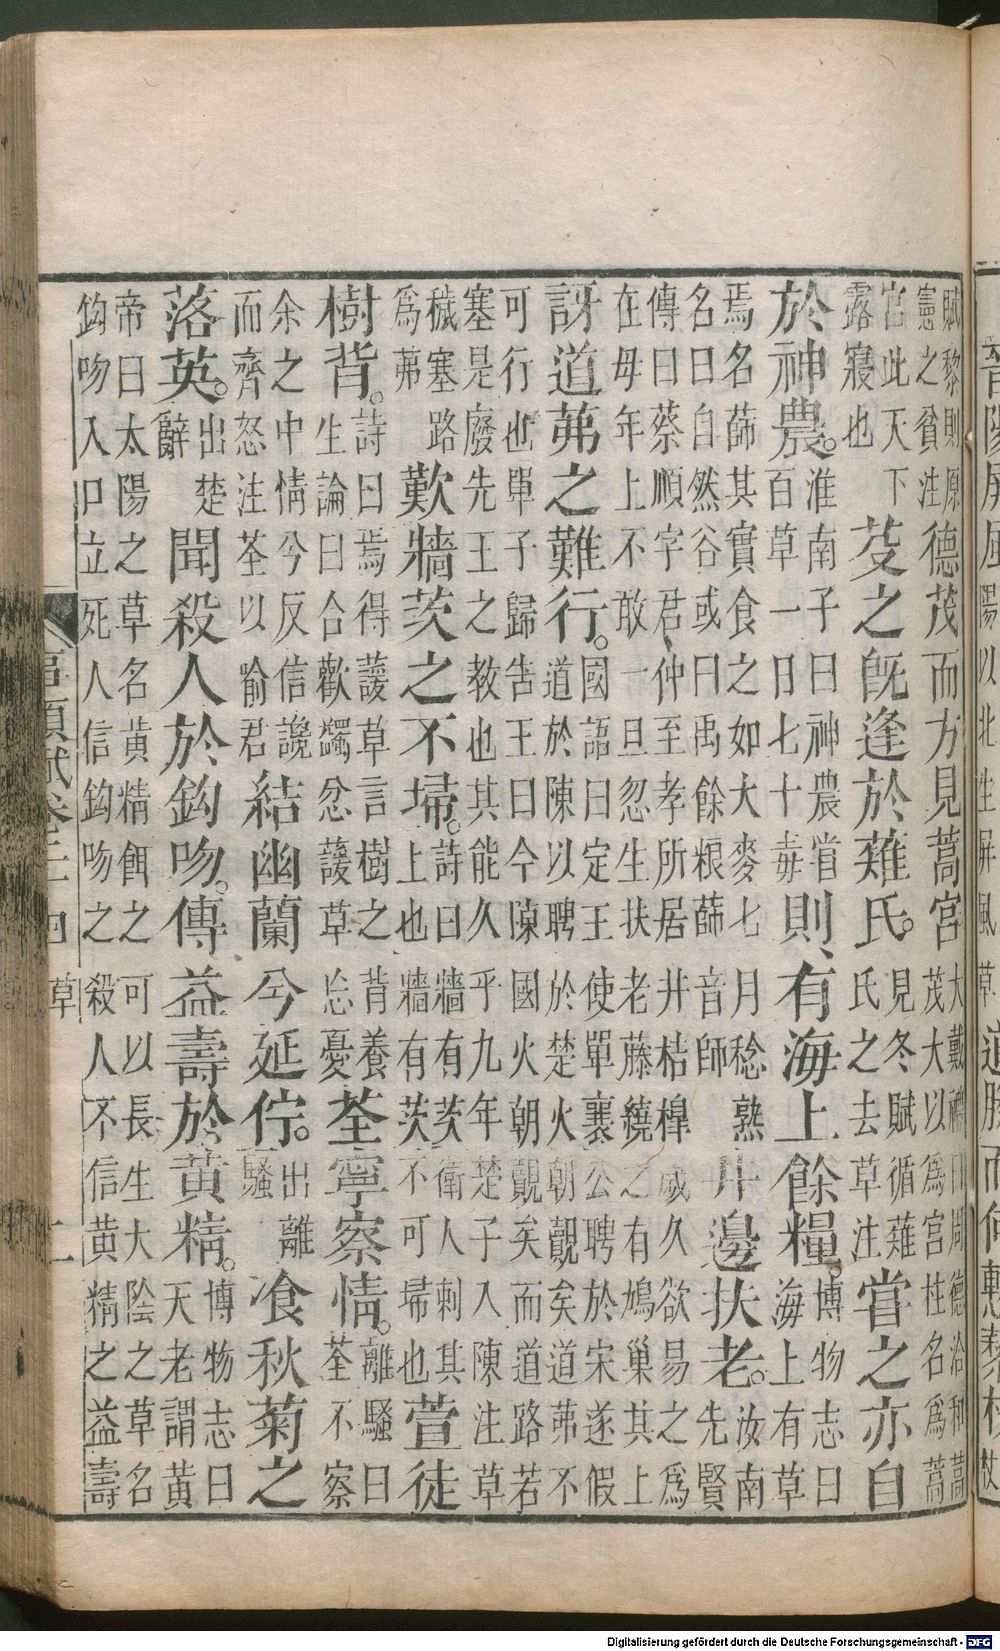 屏風陽以北生屏風草道勝而何慙藜杖
賦黎則原
憲之貧注
德茂而方見蒿宮
大戴禮曰周德洽和蒿
茂大以為宮柱名為蒿
宮此天下
露寢也
芟之旣逢於薙氏。
見冬賦循薙
氏之去草注
嘗之亦自
於神農。
淮南子曰神農嘗
百草一日七十毒
則有海上餘糧。
博物志曰
海上有草
焉名篩其實食之如大麥七月稔熟
名曰自然谷或曰禹餘粮篩音師
井邊扶老。
汝南
先賢
傳曰蔡順字君仲至孝所居井桔槹歲久欲易之為
在母年上不敢一旦忽生扶老藤繞之有鳩巢其上
訝道茀之難行。
國語曰定王使單襄公聘於宋遂假
道於陳以聘於楚火朝覿矣道茀不
可行也單子歸告王曰今陳國火朝覿矣而道路若
塞是廢先王之教也其能久乎九年楚子入陳注草
穢塞路
為茀
歎牆茨之不埽。
詩曰牆有茨衛人刺其
上也牆有茨不可埽也
萱徒
樹背。
詩曰焉得諼草言樹之背養
生論曰合歡蠲忿諼草忘憂
荃寧察情。
離騷曰
荃不察
余之中情兮反信讒
而齊怒注荃以喻君
結幽蘭兮延佇。
出離
騷
飡秋菊之
落英。
出楚
辭
聞殺人於鈎吻。傳益壽於黃精。
博物志曰
天老謂黃
帝曰太陽之草名黃精餌之可以長生大陰之草名
鈎吻入口立死人信鈎吻之殺人不信黃精之益壽
類賦卷 四 草
Digitalisierung gefördert durch die Deutsche Forschungsgemeinschaft - DFG